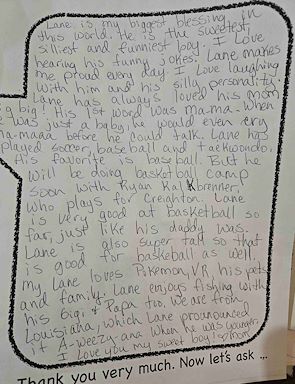 Lane is my biggest blessing in
this world. He is the sweetest,
silliest and funniest boy. I Love
hearing his funny jokes! Lane makes
me proud every day. I Love laughing
with him and his silly personality.
Lane has always loved his mom
g big! His 1st word was ma-ma. When
e was just a baby, he would even cry
ma-maaa before he could talk. Lane has
played soccer, baseball and taekwondo.
His favorite is baseball. But he
will be doing basketball camp
soon with Ryan Kalkbrenner,
who plays for Creighton. Lane
is very good at basketball so
far, just like his daddy was.
Lane is also super tall so that
is good for basketball as well.
my Lane loves Pokemon, VR, his pets
and family. Lane enjoys fishing with
his Gigi & Papa too. We are from
Louisiana, which Lane pronounced
it A-weezy-ana when he was younger.
I Love you my sweet boy! ~mom
Thank you very much. Now let's ask ...